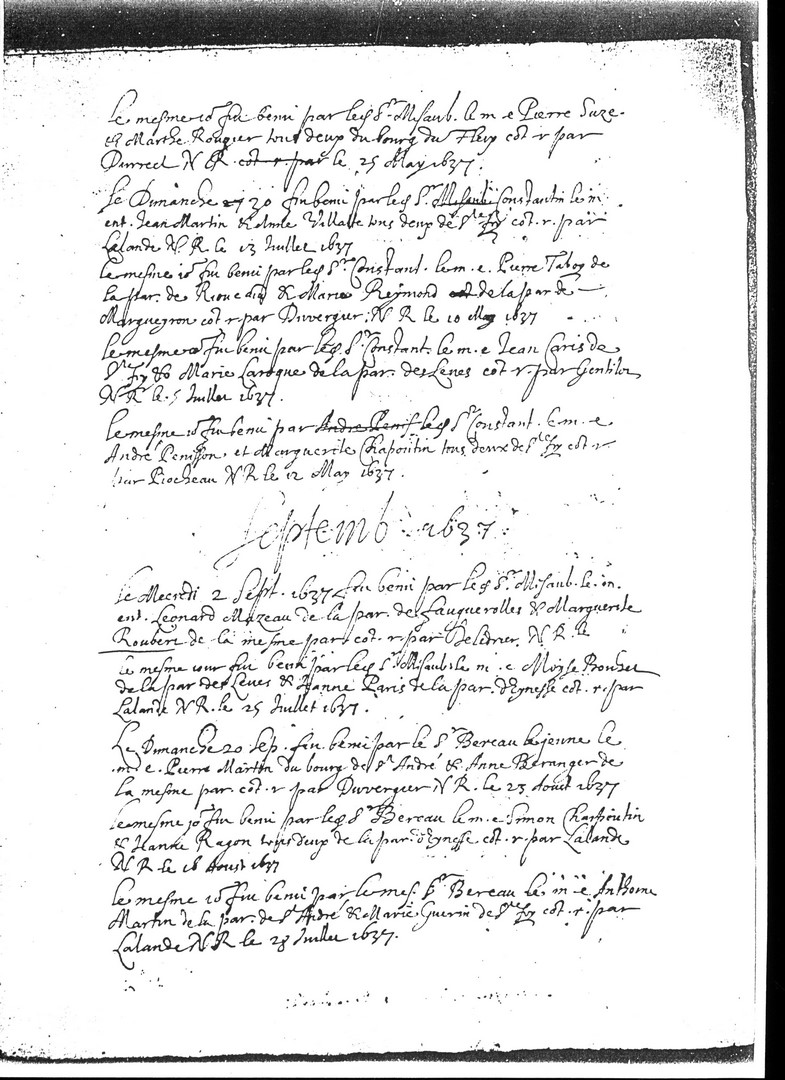 Le mesme io fut beni par led Sr. Misaub. le m. e Pierre Suze.
et Marthe Rouger tous deux du bourg du Fleix cot. r. par
Durrect N. R. cot r par le 25 May 1637.
Le Dimanche 30 fut beni par led Sr. Misaub Constantin le m.
ent. Jean Martin & Anne Villatte tous deux de Ste Foy cot. r. par
Lalande N. R. le 13 Juillet 1637
Le mesme io fut beni par led Sr. Constant. le m. e. Pierre
la par. de & Marie Reymond cot de la par de
Margueyron cot r. par Duvergier N R le 10 May 1637
Le mesme io fut beni par led Sr. Constant. le m. e Jean Caris de
Ste Foy & Marie Laroque de la par. des Leves cot r. par Gentilot
N R le 5 Juillet 1637.
Le mesme io fut beni par André Penis led Sr Constant. le m. e
André Penisson et Marguerite Chapoutin tous deux de Ste Foy cot r
par Piocheau N R le 12 May 1637.
Septemb. 1637.
Le Mecredi 2 Sept. 1637 fut beni par led Sr. Misaub. le m.
ent. Leonard Mazeau de la par. de Fauguerolles & Marguerite
Roubert de la mesme par cot. r. par N. R. le
le mesme iour fut beni par led Sr Misaub le m. e Moyse Bouhet
de la par des Leves & Jeanne Paris de la par. d'Eynesse cot. r. par
Lalande N R. le 25 Juillet 1637.
Le Dimanche 20 Sep. fut beni par le Sr Bereau le jeune le
m. e. Pierre Martin du bourg de St André & Anne Beranger de
la mesme par. cot. r par Duvergier N R. le 23 Aout 1637
le mesme io fut beni par led Sr Bereau le m. e Simon Chapoutin
& Jeanne Ragon tous deux de la par. d'Eynesse cot. r. par Lalande
N R le 16 Aoust 1637
Le mesme io fut beni par le mes. Sr Bereau le m e Anthoine
Martin de la par. de St André & Marie Guerin de Ste Foy cot. r. par
Lalande N R le 28 Juillet 1637.